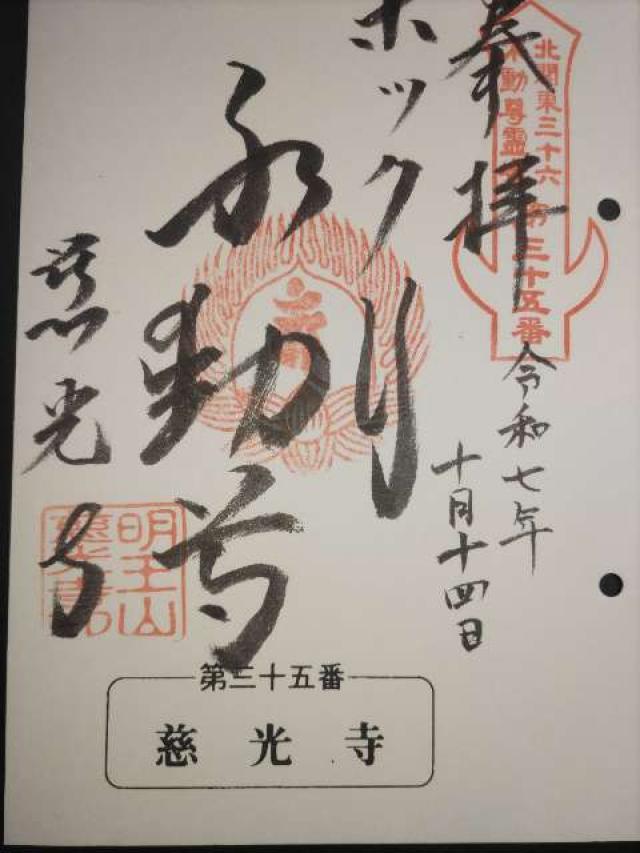 奉拝
北関東三十六
不動尊霊
第三十五番
令和七年
十月十四日
ホックリ
不動尊
慈光寺
明王山
慈光寺
第三十五番
慈光寺